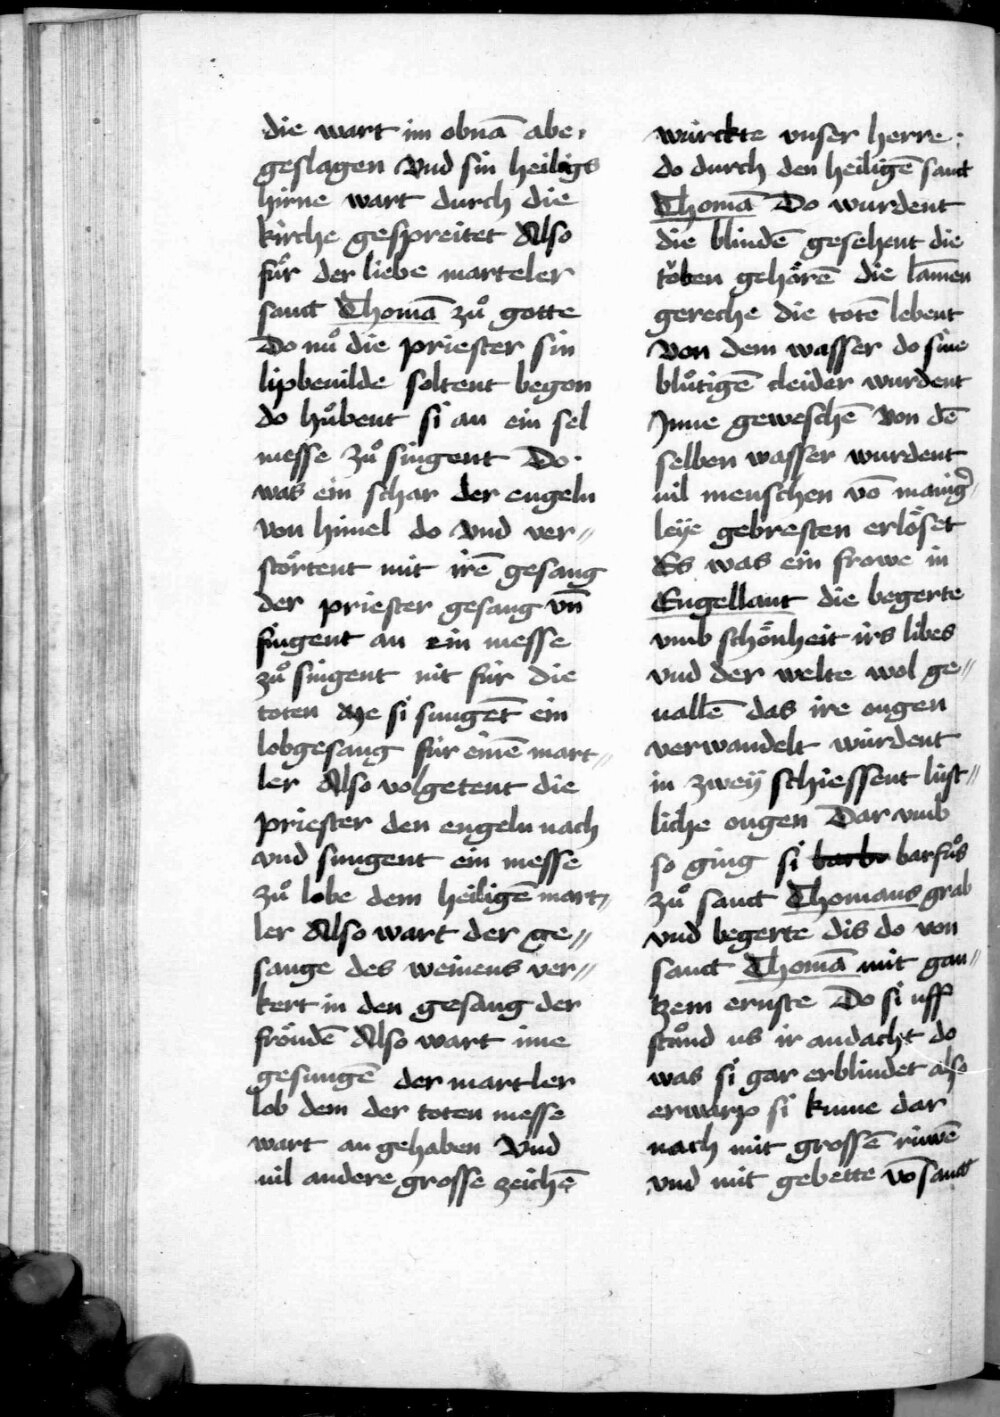 die wart im obnā abe
geslagen Vnd sin heiligs
hirne wart durch die
kirche gespreitet Also
fuͤr der liebe marteler
sanct Thomā zuͦ gotte
Do nuͦ die priester sin
lipbeuilde soltent began
do huͦbent si an ein sel
messe zuͦ singent Do
was ein schar der engeln
von himel do vnd ver〃
stoͤrtent mit irē gesang
der priester gesang vn̄
fingent an ein messe
zuͦ singent nit fúr die
toten Me si sungēt ein
lobgesang fúr einē mart〃
ler Also volgetent die
priester den engeln nach
vnd sungent ein messe
zuͦ lobe dem heiligē mart〃
ler Also wart der ge〃
sange des weinens ver〃
kert in den gesang der
froͤudē Also wart ime
gesungē der martler
lob dem der toten messe
wart an gehaben Vnd
uil andere grosse zeichē
wúrckte vnser herre
do durch den heiligē sanct
Thomā Do wurdent
die blindē gesehent die
toͤben gehoͤrē die lamen
gereche die totē lebent
Von dem wasser do sine
bluͦtigē cleider wurdent
Inne geweschē Von dē
selben wasser wurdent
uil menschen vō manig̉〃
leye gebresten erloͤset
Es was ein frowe in
Engellant die begerte
vmb schoͤnheit irs libes
vnd der welte wol ge〃
uallē das ire ougen
verwandelt wúrdent
in zweÿ schiessent lúst〃
liche ougen Dar vmb
so ging si barbv barfuͦs
zuͦ sanct Thomans grab
vnd begerte dis do von
sanct Thomā mit gan〃
tzem ernste Do si uff
stuͦnd us ir andacht do
was si gar erblindet also
erwarp si kume dar
nach mit grossē rúwē
vnd mit gebette vō sanct